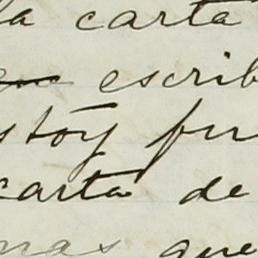 la carta
escrib
stoy pu
carta de
mas que